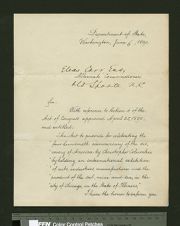 Department of State,
Washington, June 6, 1890.
Elias Carr Esq.
Old Sparta N.C.
Sir:
With reference to Section 3 of the
Act of Congress approved April 25, 1890,
and entitled:
"An Act to provide for celebrating the
four hundredth anniversary of the dis-
covery of America by Christopher Columbus
by holding an international exhibition
of arts, industries, manufactures and the
product of the soil, mine and sea, in the
city of Chicago, in the State of Illinois,"
I have the honor to inform you
Color Control Patches